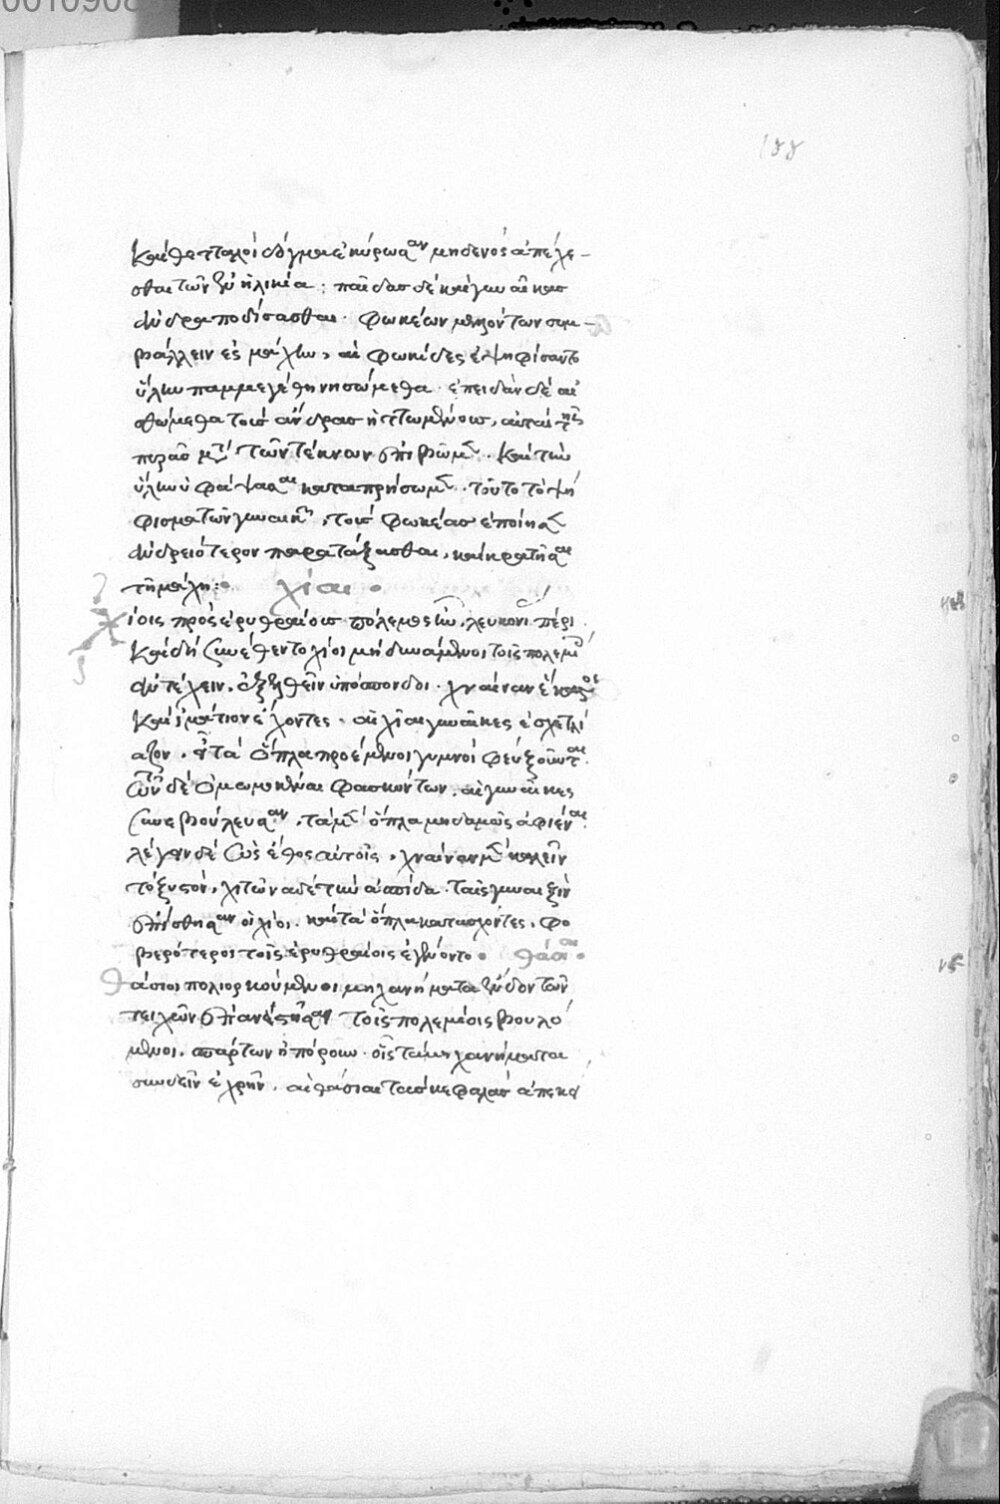 καὶ θετταλοὶ δόγμα ἐκύρωσαν μηδενὸς ἀπέχε-
σθαι τῶν ἐν ἡλικία : παῖδας δὲ καὶ γυναῖκας
ἀνδραποδίσασθαι. φωκέων μελλόντων συμ-
βάλλειν ἐς μάχην, αἱ φωκίδες ἐψηφίσαντο
ὕλην παμμεγέθη νησώμεθα. ἐπειδὰν δὲ αἰ
σθώμεθα τοὺς ἄνδρας ἡττωμένους, αὐταὶ τῆς
πυρᾶς μετὰ τῶν τέκνων ἐπιβῶμεν. καὶ τὴν
ὕλην ὑφάψασαι καταπρήσωμεν. τοῦτο τὸ ψή
φισμα τῶν γυναικῶν, τοὺς φωκέας ἐποίησεν
ἀνδρειότερον παρατάξασθαι, καὶ κρατῆσαι
τῆ μάχη: χίαι
χίοις πρὸς ἐρυθραίους πόλεμος ἦν, λευκονί πέρι.
καὶ δὴ συνέθεντο χίοι μὴ δυνάμενοι τοῖς πολεμί
ἀντέχειν. ἐξελθεῖν ὑπόσπονδοι. χλαῖναν ἕκαστος
καὶ ἱμάτιον ἔχοντες. αἱ χῖαι γυναῖκες ἐσχετλί
αζον. εἰ τὰ ὅπλα προέμενοι γυμνοὶ φεύξοιντ
τῶν δὲ ὀμωμοκέναι φασκόντων. αἱ γυναῖκες
συνεβούλευσαν, τὰ μὲν ὅπλα μηδαμῶς ἀφιέναι.
λέγειν δὲ ὡς ἔθος αὐτοῖς, χλαῖναν μὲν καλεῖν
τὸ ξυστὸν, χιτῶνα δὲ τὴν ἀσπίδα. ταῖς γυναιξὶν
ἐπείσθησαν οἱ χίοι. καὶ τὰ ὅπλα κατασχόντες, φο
βερότεροι τοῖς ἐρυθραίοις ἐγένοντο. θάσιαι
θάσιοι πολιορκούμενοι μηχανήματα ἔνδον τῶν
τειχῶν ἐπανέστησαν τοῖς πολεμίοις βουλό
μενοι. σπάρτων ἠπόρουν. οἷς τὰ μηχανήματα
συνδεῖν ἐχρῆν. αἱ θάσιαι τὰς κεφαλὰς ἀπεκεί